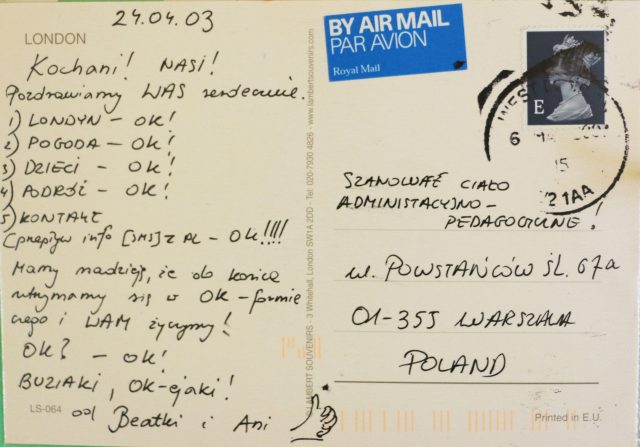 24.04.03
LONDON
Kochani! NASI!
Pozdrawiamy WAS serdecznie.
1) LONDYN - OK!
2) POGODA - OK!
3) DZIECI - OK!
4) PODRÓŻ - OK!
5) KONTAKT
(przepływ info [SMS] z PL - OK!!!!
Mamy nadzieję, że do końca
utrzymamy się w OK-formie
czego i WAM życzymy!
OK? - OK!
BUZIAKI, OK-ejaki!
od Beatki i Ani
LS-064
LAMBERT SOUVENIRS - 3 Whitehall, London SW1A 2DD - Tel: 020-7930 4826 - www.lambertsouvenirs.com
BY AIR MAIL
PAR AVION
Royal Mail
E
6
15
21AA
SZANOWNE CIAŁO
ADMINISTACYJNO-
PEDAGOGICZNE!
ul. POWSTAŃCÓW ŚL. 67a
01-355 WARSZAWA
POLAND
Printed in E.U.